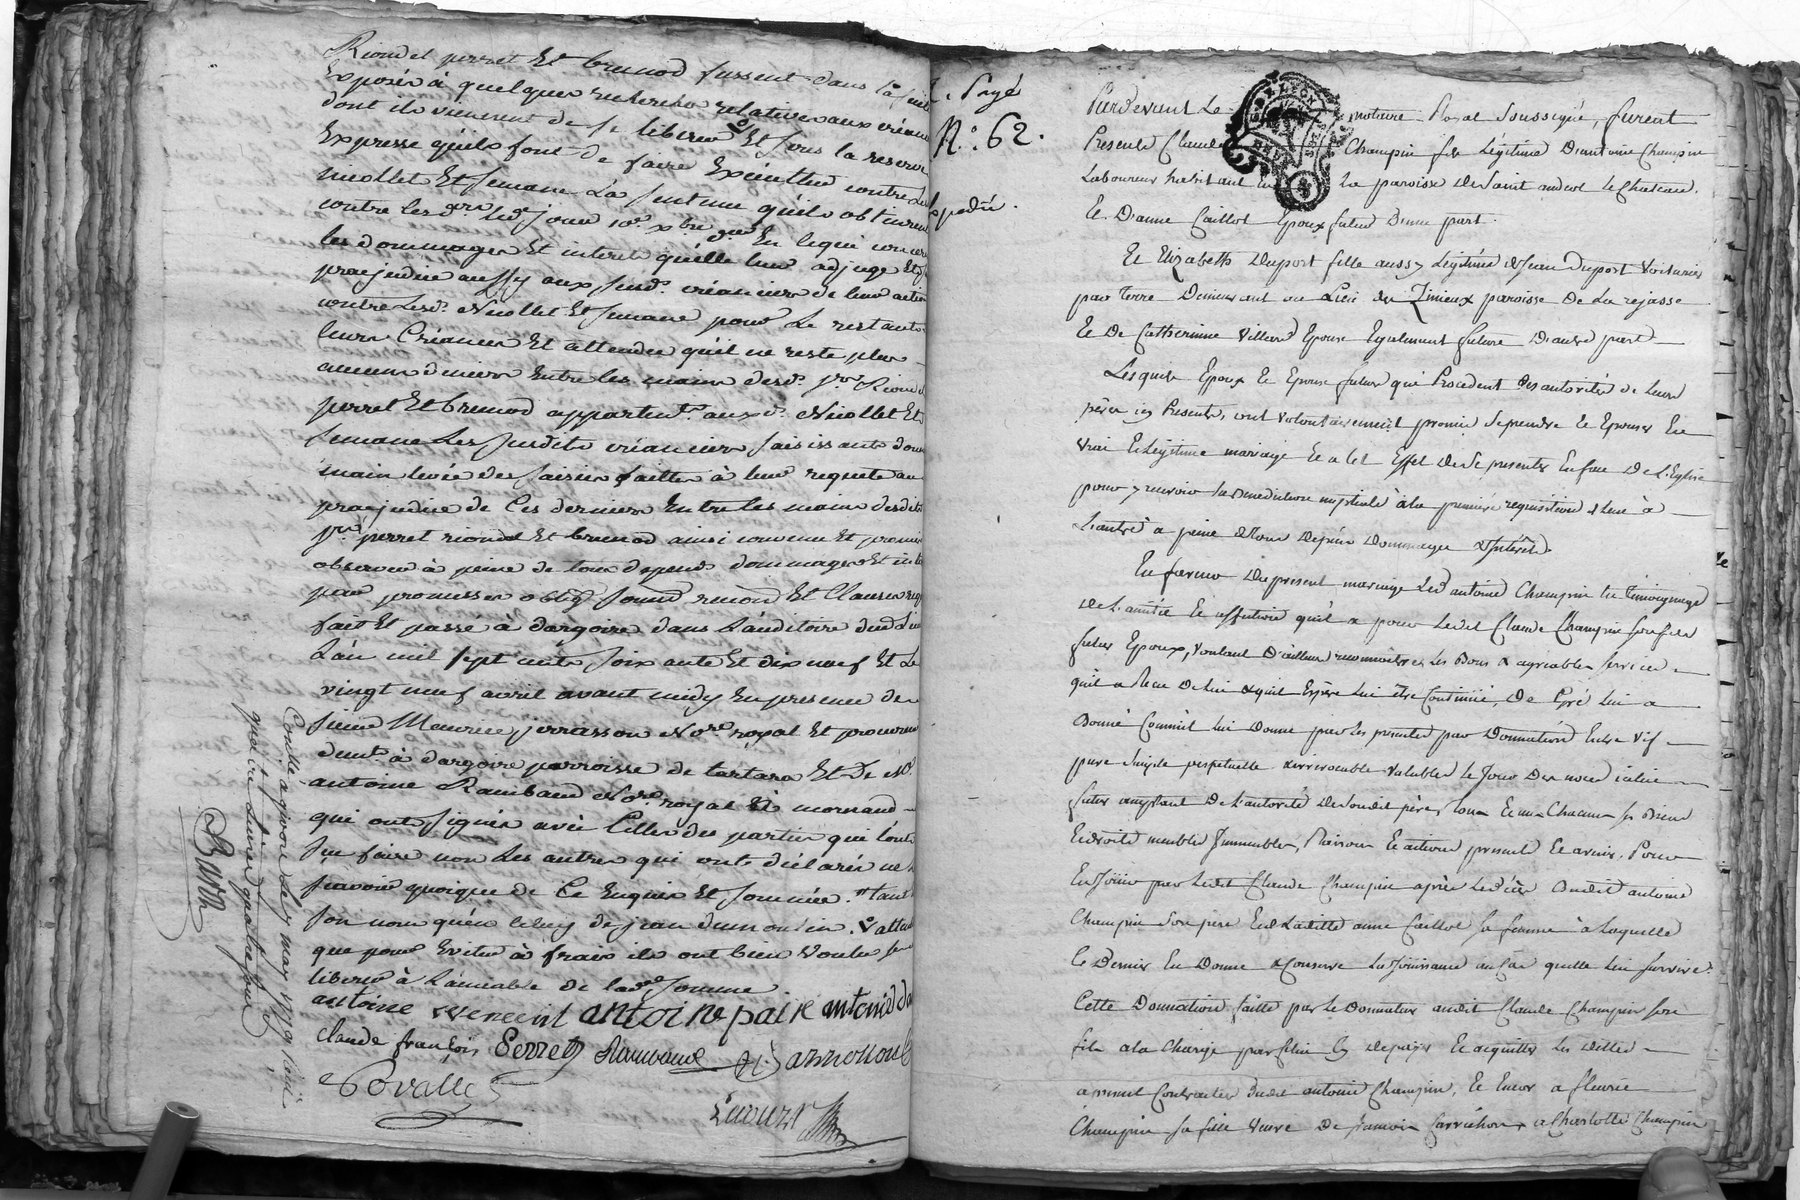 Riondet perret Et brunod fussent dans la suite
Exposés à quelques recherches relatives aux créances
dont ils viennent de se liberer Et sous la reserve
Expresse qu'ils font de faire Exécutter contre
nicollet Et semane la sentence qu'ils obtinrent
contre lesd. jour 10e xbre En ce qui concerne
les dommages Et interets qu'elle leur adjuge Et
prejudice aussy aux susd. créanciers de leur action
contre Lesd. Nicollet Et semane pour Le restant
leurs Créances Et attendu qu'il ne reste plus
aucuns deniers Entre les mains desd. Riondet
perret Et brunod appartents. aux d. Nicollet Et
semane Les susdits créanciers saisissants donnent
main levée des saisies faittes à leur requete au
prejudice de Ces derniers Entre les mains desdits
perret riondet Et brunod ainsi convenu Et promis
observer à peine de tous depends dommages Et
par promesses oblig. soum. renon. Et Clauses
fait Et passé à dargoire dans L'auditoire dud Lieu
L'an mil sept cents soixante Et dix neuf Et Le
vingt neuf avril avant midy En presence de
sieur Maurice jerrasson No.re royal Et procureur
demt. à dargoire parroisse de tartara Et De Me.
antoine Raimbaud No.re royal à mornand
qui ont signés avec Celles des parties qui l'ont
Su faire non Les autres qui ont déclarés ne
scavoir quoique de Ce Enquis Et Sommés. tant
son nom qu'en celuy de jean dumoulin. attendu
que pour Eviter à frais ils ont bien voulu se
liberer à L'amiable de lad. somme
antoine vincent antoine paire antoine
claude françois Perret Raimbaud
Povalle
Lacour
Conllé a givors Le may 1779 Reçu
livres quatre sous
Barry
Payé
N.o 62.
Expedié.
Pardevant Le notaire Royal Soussigné, furent
Presents Claude Champin fils Légitime D'antoine Champin
Laboureur habitant En la paroisse De Saint andeol le Chateau.
Et D'anne Caillot Epoux futur D'une part.
Et Elizabeth Duport fille aussy Légitime de Jean Duport Voiturier
par terre Demeurant au Lieu du Zimieux paroisse De La rejasse
Et De Catherinne Villard Epouse Egalement future D'autre part
Lesquels Epoux Et Epouse futurs qui Procedent Des autorités de Leurs
pères icy Presents, ont volontairement promis Se prendre Et Epouser En
vrai Et Légitime mariage Et a cet Effet De Se presenter En face De L'Eglise
pour y recevoir La Benediction nuptiale à la première requisition de L'un à
L'autre a peine de tous Depens Dommages & Interets.
En faveur Du present mariage Led antoine Champin En témoignage
De L'amitié Et affection qu'il a pour Ledit Claude Champin son fils
futur Epoux, Voulant D'ailleurs reconnoitre Les Bons & agréables Services
qu'il a Reçu De Lui & qu'il Espère Lui être Continués, De Gré Lui a
Donné Comme il Lui Donne par Les presentes par Donnation Entre Vifs
pure Simple perpetuelle & irrevocable Valable Le Jour Des noces icelui
futur acceptant De L'autorité De Sondit père, tous Et un Chacun Ses Biens
Et droits meubles Immeubles, Raisons Et actions presents Et avenir. Pour
En Jouir par Ledit Claude Champin après Le Décès Dudit antoine
Champin Son père Et de Laditte anne Caillot Sa femme à Laquelle
Ce Dernier En Donne & Conserve La Jouissance au Cas qu'elle Lui Survive.
Cette Donnation faitte par Le Donnateur audit Claude Champin Son
fils a la Charge par Celui Cy De payer Et acquitter Les Dettes
Contractées Dudit antoine Champin, Et Encor a fleurie
Champin Sa fille Veuve De françois Carrichon, a Charlotte Champin